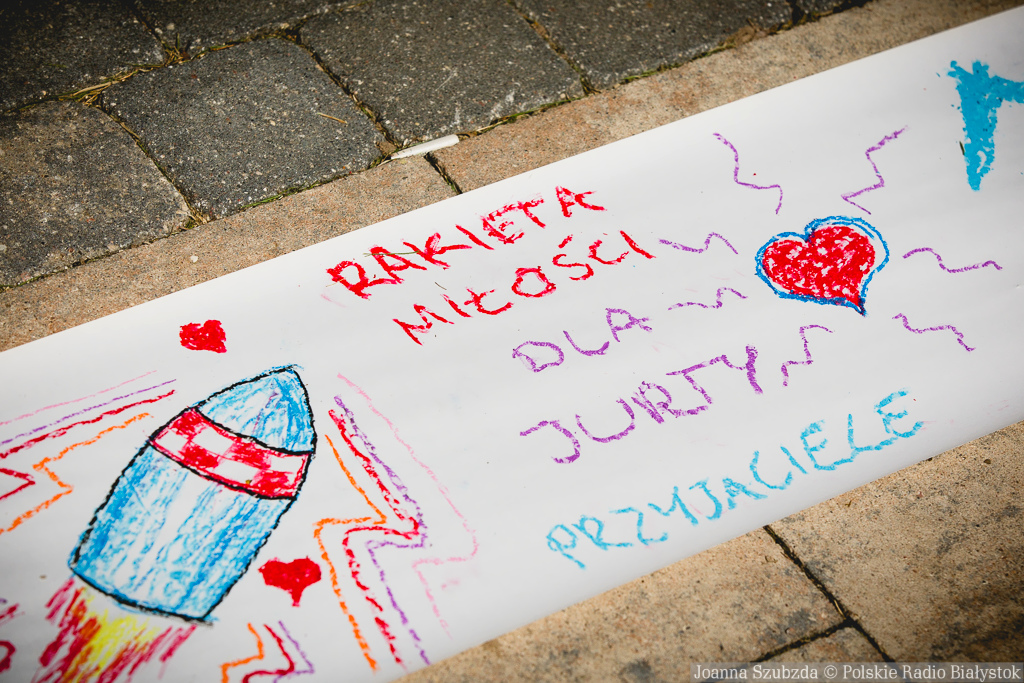 RAKIETA
MIŁOŚCI
DLA
JURTY
PRZYJACIELE
Joanna Szubzda © Polskie Radio Białystok